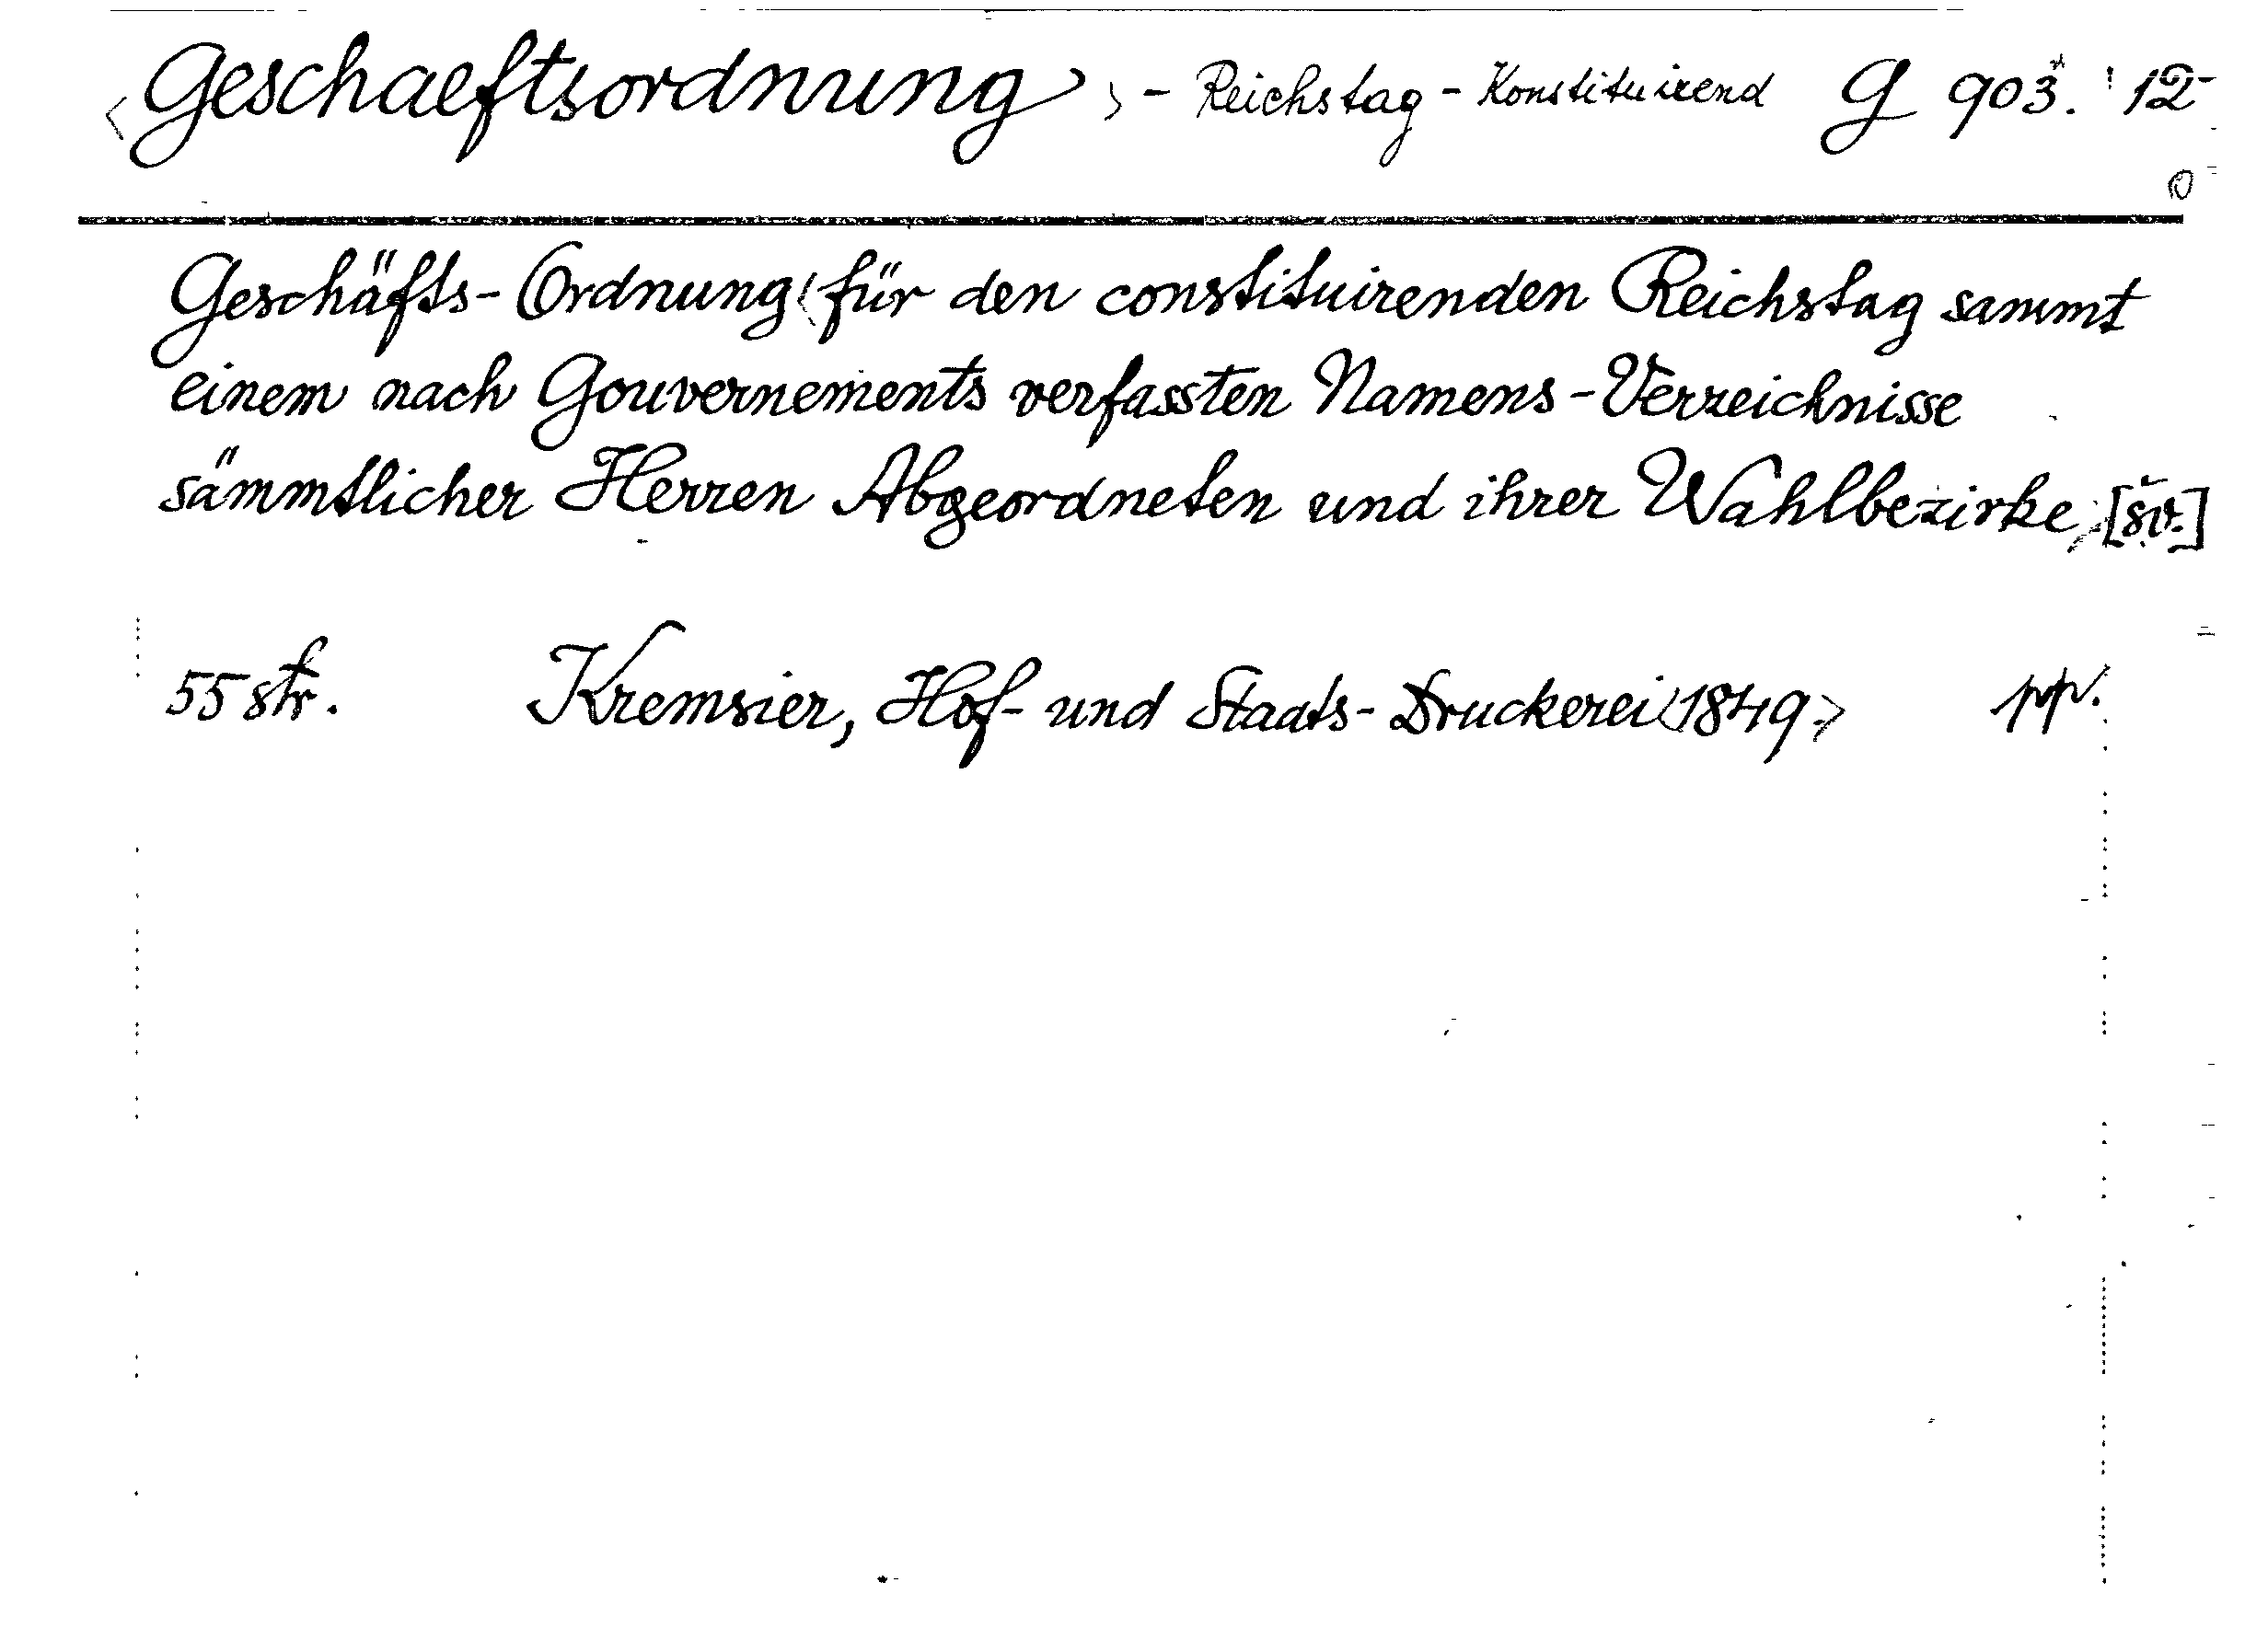 <Geschaeftsordnung> - Reichstag - Konstituirend G 903. 12
Geschäfts-Ordnung <für den constituirenden Reichstag sammt
einem nach Gouvernements verfassten Namens-Verzeichnisse
sämmtlicher Herren Abgeordneten und ihrer Wahlbezirke> [šv.]
55 str. Kremsier, Hof- und Staats-Druckerei <1849> pp.